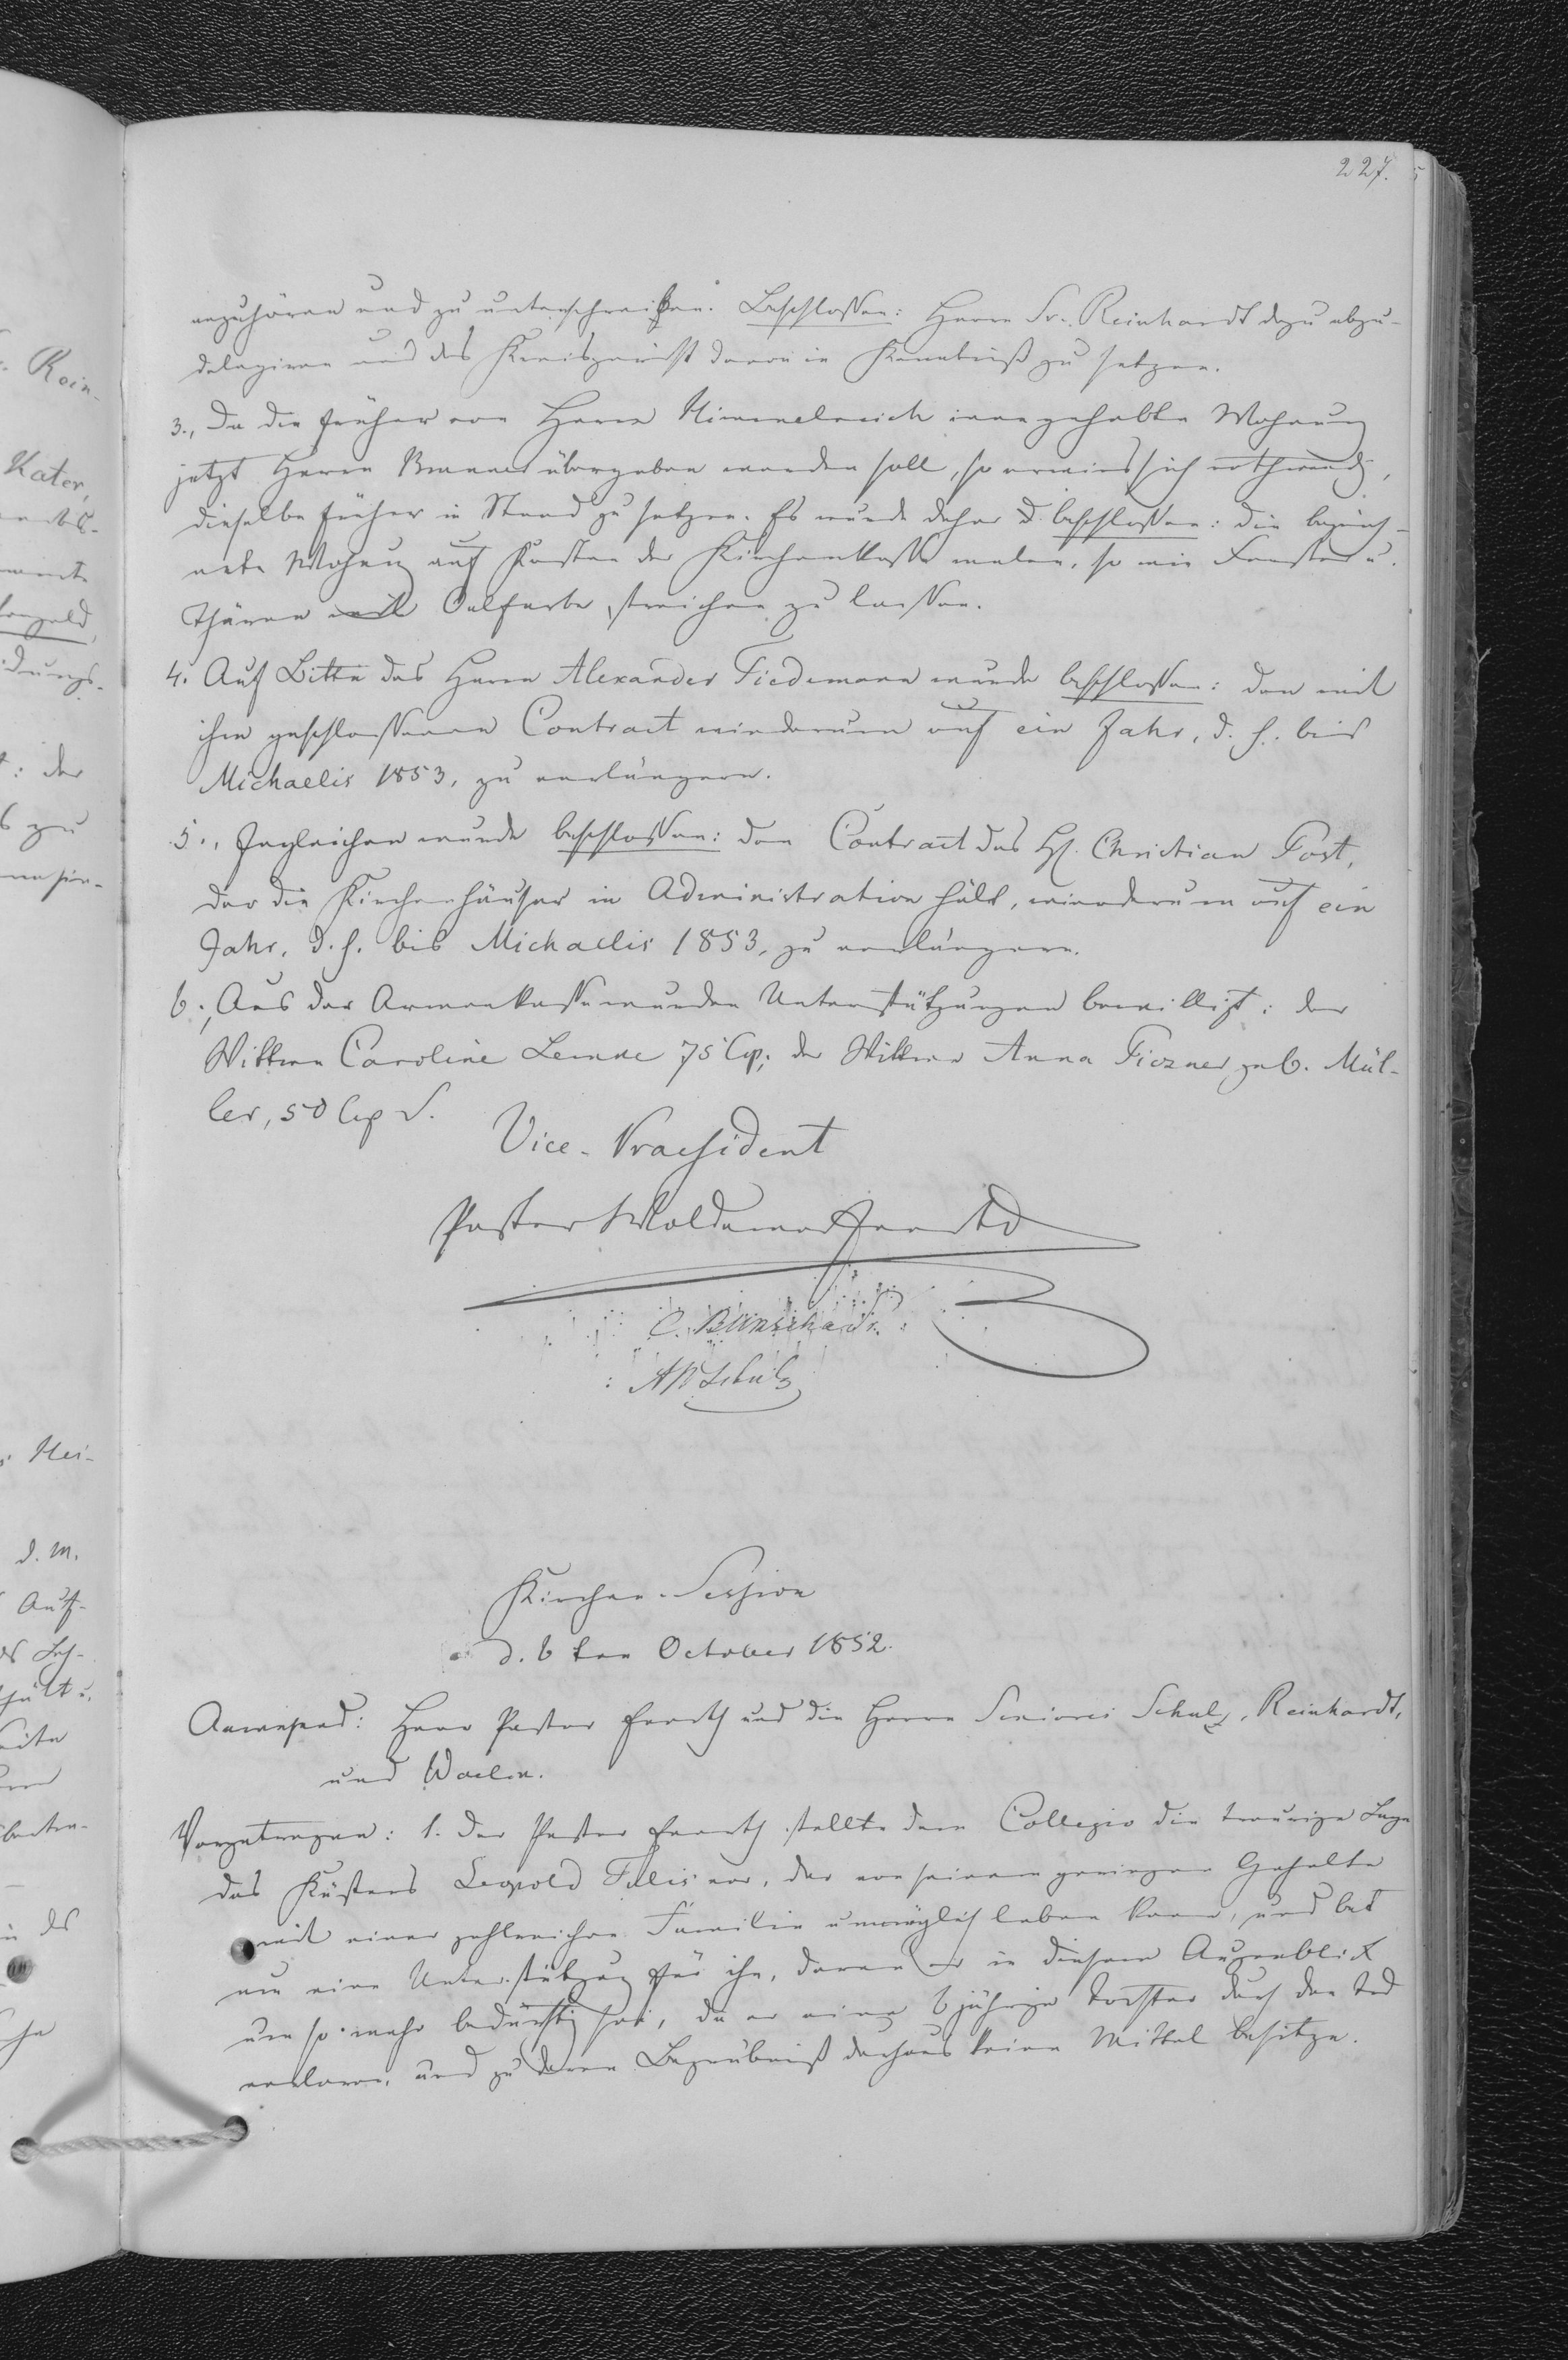 227.
anzuhören und zu unterschreiben. Beschlossen: Herrn Sr. Reinhardt dazu abzu-
delegiren und das Kreisgericht davon in Kenntniß zu setzen.
3., Da die früher von Herrn Himmelreich innegehabte Wohnung
jetzt Herrn übergeben werden soll, so erwies sich nothwendig,
dieselbe früher in Stand zu setzen. Es wurde daher beschlossen: die bezeich-
nete Wohnung auf Kosten der Kirchenkasse malen, so wie Fenster u.
Thüren mit Oelfarbe streichen zu lassen.
4. Auf Bitte des Herrn Alexander Tiedemann wurde beschlossen: den mit
ihm geschlossenen Contract wiederum auf ein Jahr, d. h. bis
Michaelis 1853, zu verlängern.
5., Ingleichen wurde beschlossen: den Contract des H. Christian Fost,
der die Kirchenhäuser in Administration hält, wiederum auf ein
Jahr, d. h. bis Michaelis 1853, zu verlängern.
6., Aus der Armenkasse wurden Unterstützungen bewilligt: der
Wittwe Caroline 75 Cop; der Wittwe Anna geb. Mül-
ler, 50 Cop S.
Vice-Praesident
Pastor Woldemar
C. Reinhardt.
Schulz
Kirchen-Session
d. 6ten October 1852.
Anwesend: Herr Pastor und die Herrn Seniores Schulz, Reinhardt,
und
Vorgetragen: 1. Der Pastor stellte dem Collegio die traurige Lage
des Küsters Leopold vor, der von seinem geringen Gehalte
mit einer zahlreichen Familie unmöglich leben kann, und bat
um eine Unterstützung für ihn, deren er in diesem Augenblick
um so mehr bedürftig sei, da er eine 6jährige Tochter durch den Tod
verloren, und zu deren Begräbniß durchaus keine Mittel besitze.